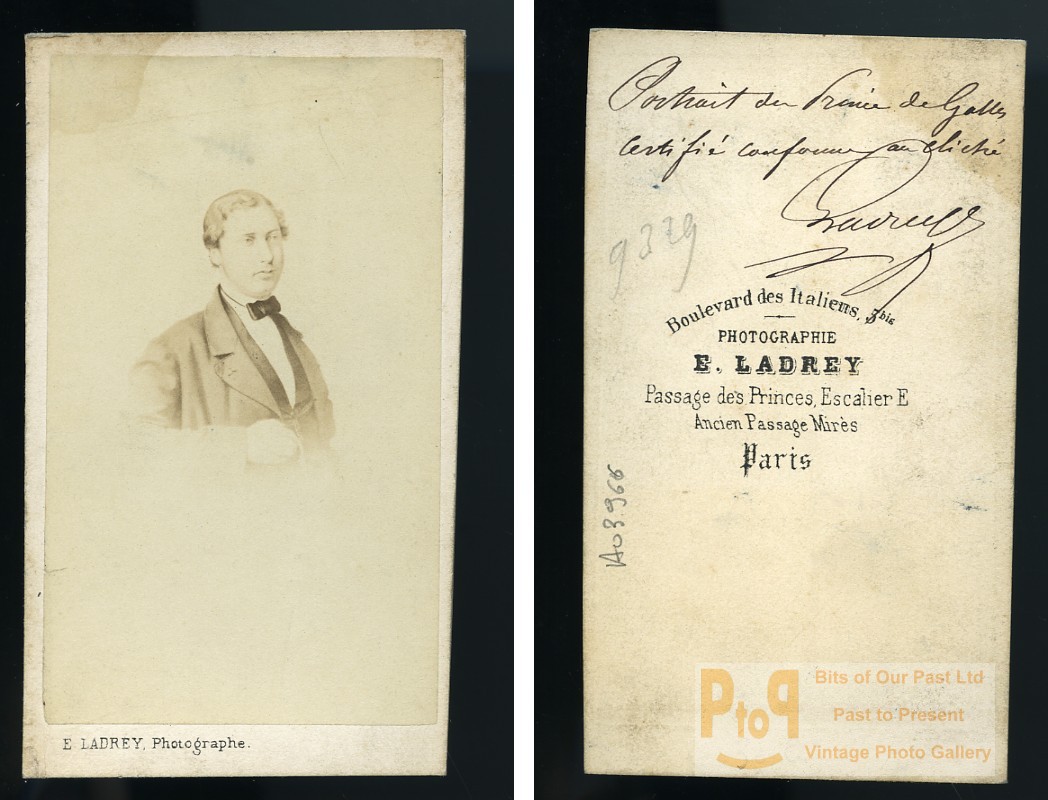 E. LADREY, Photographe.
Portrait du Prince de Galles
certifié conforme au cliché
Ladrey
9379
Boulevard des Italiens, 5bis
PHOTOGRAPHIE
E. LADREY
Passage des Princes, Escalier E
Ancien Passage Mirès
Paris
A03966
PtoP
Bits of Our Past Ltd
Past to Present
Vintage Photo Gallery